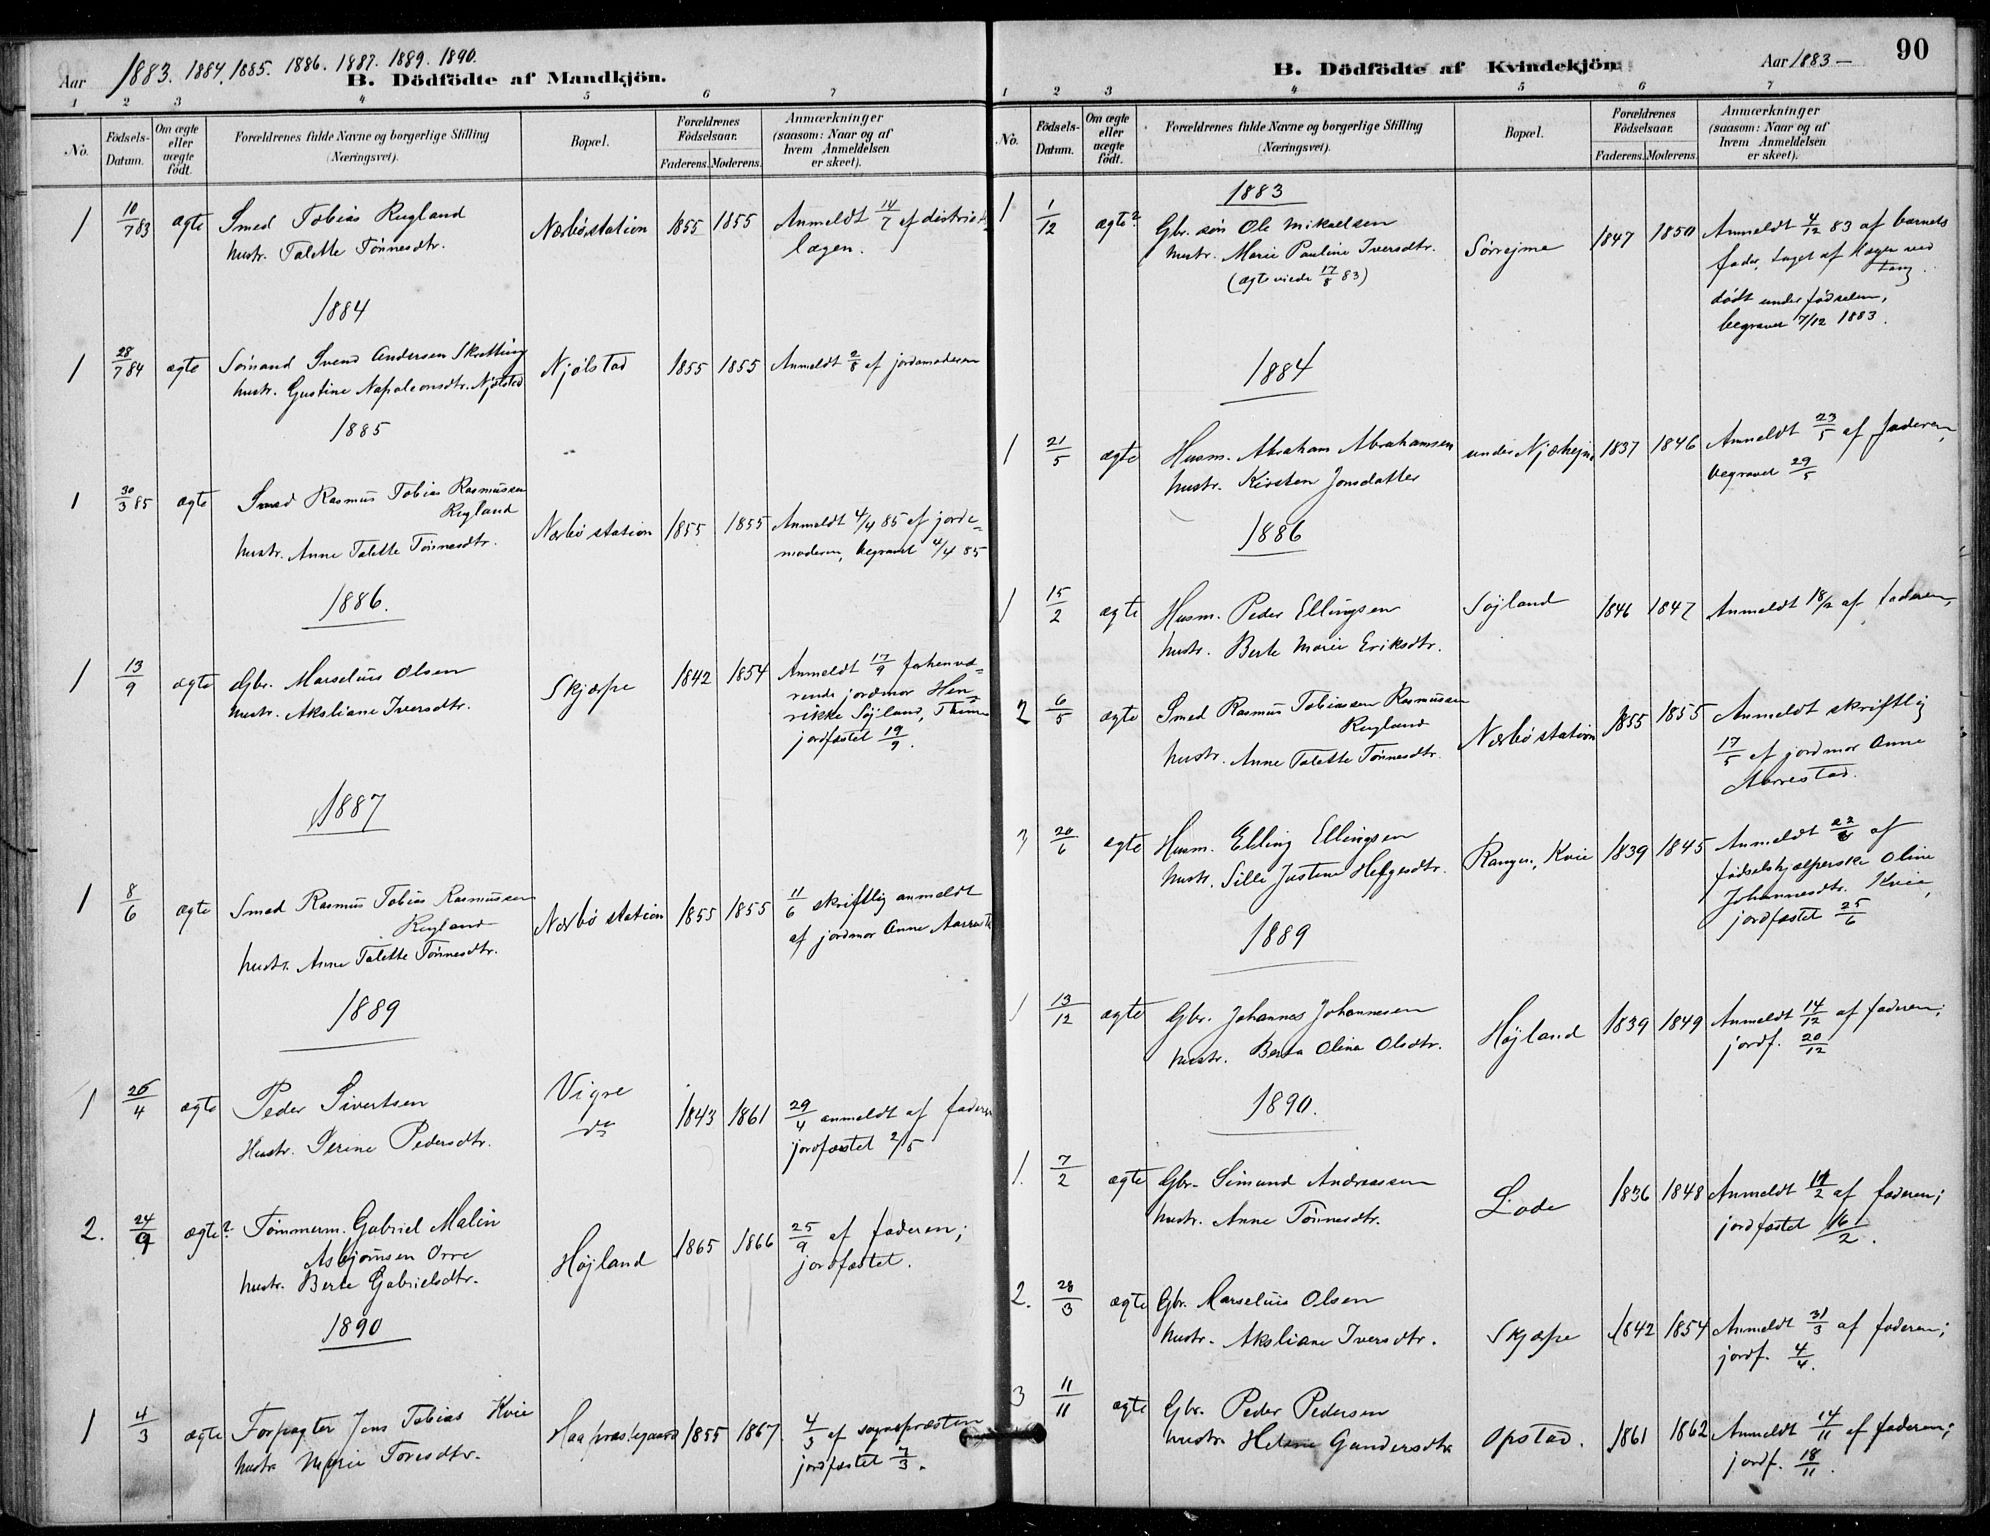 Aar 1883. 1884. 1885. 1886. 1887. 1889. 1890.
B. Dödfödte af Mandkjön.
1 2 3 4 5 6 7
No.
Födsels-Datum.
Om ægte eller uægte födt.
Forældrenes fulde Navne og borgerlige Stilling (Næringsvei).
Bopæl.
Forældrenes Födselsaar.
Faderens. Moderens.
Anmærkninger (saasom: Naar og af hvem Anmeldelsen er skeet).
1 10/7 83 ægte Smed Tobias Rugland Nærbø station 1855 1855 Anmeldt 14/7 af distrikts
hustr. Talette Tønnesdtr. lægen.
1884
1 28/7 84 ægte Sømand Svend Andersen Skretting Njølstad 1855 1855 Anmeldt 2/8 af jordemoderen
hustr. Gustine Napoleonsdtr. Njølstad
1885
1 30/3 85 ægte Smed Rasmus Tobias Rasmussen
Rugland Nærbø station 1855 1855 Anmeldt 4/4 85 af jorde-
hustr. Anne Talette Tønnesdtr. moderen, begravet 4/4 85
1886.
1 13/9 ægte Gbr. Marselius Olsen Skjærpe 1842 1854 Anmeldt 17/9 forhenvæ-
hustr. Aksliane Iversdtr. rende jordmor Hen-
rikke Søjland, Thime
jordfæstet 19/9.
1887
1 8/6 ægte Smed Rasmus Tobias Rasmussen
Rugland Nærbø station 1855 1855 11/6 skriftlig anmeldt
hustr. Anne Talette Tønnesdtr. af jordmor Anne Aarrestad
1889
1 26/4 ægte Peder Sivertsen Vigre 1843 1861 29/4 anmeldt af faderen
Hustr. Serine Pedersdtr. do jordfæstet 2/5
2. 24/9 ægte? Tømmerm. Gabriel Malin
Asbjørnsen Orre Højland 1865 1866 25/9 af faderen;
hustr. Berte Gabrielsdtr. jordfæstet.
1890
1 4/3 ægte Forpagter Jens Tobias Kvie Haa præstegaard 1855 1867 4/3 af sognepræsten
hustr. Marie Toresdtr. jordfæstet 7/3.
B. Dödfödte af Kvindekjön.
Aar 1883 —
90
1 2 3 4 5 6 7
No.
Födsels-Datum.
Om ægte eller uægte födt.
Forældrenes fulde Navne og borgerlige Stilling (Næringsvei).
Bopæl.
Forældrenes Födselsaar.
Faderens. Moderens.
Anmærkninger (saasom: Naar og af hvem Anmeldelsen er skeet).
1883
1 1/12 ægte? Gbr. søn Ole Mikaelsen Sørrejme 1847 1850 Anmeldt 4/12 83 af barnets
hustr. Marie Pauline Iversdtr. fader, taget af Læger ved
(ægteviede 17/8 83) tang.
dødt under fødselen,
begravet 7/12 1883.
1884
1 21/5 ægte Husm. Abraham Abrahamsen under Njærhejm 1837 1846 Anmeldt 23/5 af faderen,
hustr. Kirsten Jonsdatter begravet 29/5
1886
1 15/2 ægte Husm. Peder Ellingsen Søjland 1846 1847 Anmeldt 18/2 af faderen,
hustr. Berte Marie Eriksdtr.
2 6/5 ægte Smed Rasmus Tobiassen Rasmussen
Rugland Nærbø station 1855 1855 Anmeldt skriftlig
hustr. Anne Talette Tønnesdtr. 17/5 af jordmor Anne
Aarrestad.
3 20/6 ægte Husm. Elling Ellingsen Kvie 1839 1845 Anmeldt 22/6 af
hustr. Sille Justine Helgesdtr. fødselshjælperske Oline
Johannesdtr. Kvie,
jordfæstet 25/6
1889
1 13/12 ægte Gbr. Johannes Johannesen Højland 1839 1849 Anmeldt 14/12 af faderen;
hustr. Berta Oline Olsdtr. jordf. 20/12
1890.
1. 7/2 ægte Gbr. Simund Andreassen Lode 1836 1848 Anmeldt 11/2 af faderen;
hustr. Anne Tønnesdtr. jordfæstet 16/2.
2. 28/3 ægte Gbr. Marselius Olsen
hustr. Aksliane Iversdtr. Skjærpe 1842 1854 Anmeldt 31/3 af faderen;
jordf. 4/4.
3 11/11 ægte Gbr. Peder Pedersen
hustr. Helene Gundersdtr. Opstad. 1861 1862 Anmeldt 14/11 af faderen;
jordf. 18/11.